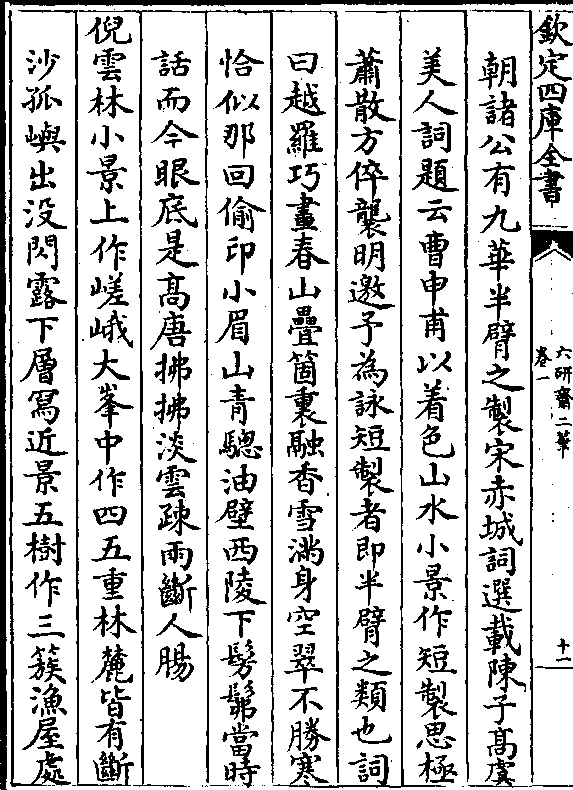 欽定四庫全書
六研齋二筆
卷一
十一
朝諸公有九華半臂之製宋赤城詞選載陳子髙虞
美人詞題云曹申甫以着色山水小景作短製思極
蕭散方倅襲明邀予為詠短製者即半臂之類也詞
曰越羅巧畫春山疊箇裏融香雪滿身空翠不勝寒
恰似那回偷印小眉山青驄油壁西陵下髣髴當時
話而今眼底是髙唐拂拂淡雲疎雨斷人腸
倪雲林小景上作嵯峨大峯中作四五重林麓皆有斷
沙孤嶼出没閃露下層寫近景五樹作三簇漁屋處